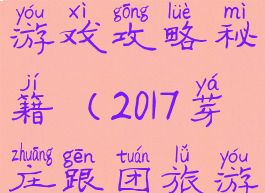 yóu xì gōng lüè mì
游戏攻略秘
jí yá
籍（2017芽
zhuāng gēn tuán lǚ yóu
庄跟团旅游